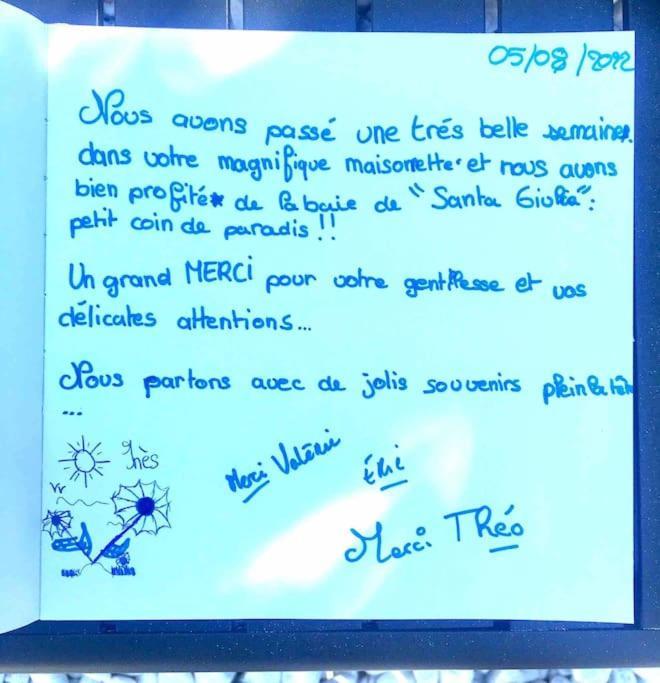 05/08/2022
Nous avons passé une trés belle semaine
dans votre magnifique maisonnette et nous avons
bien profité de la baie de "Santa Giulia":
petit coin de paradis !!
Un grand MERCI pour votre gentillesse et vos
délicates attentions...
Nous partons avec de jolis souvenirs plein la tête
...
Inès
Merci Valérie
Éric
Merci Théo